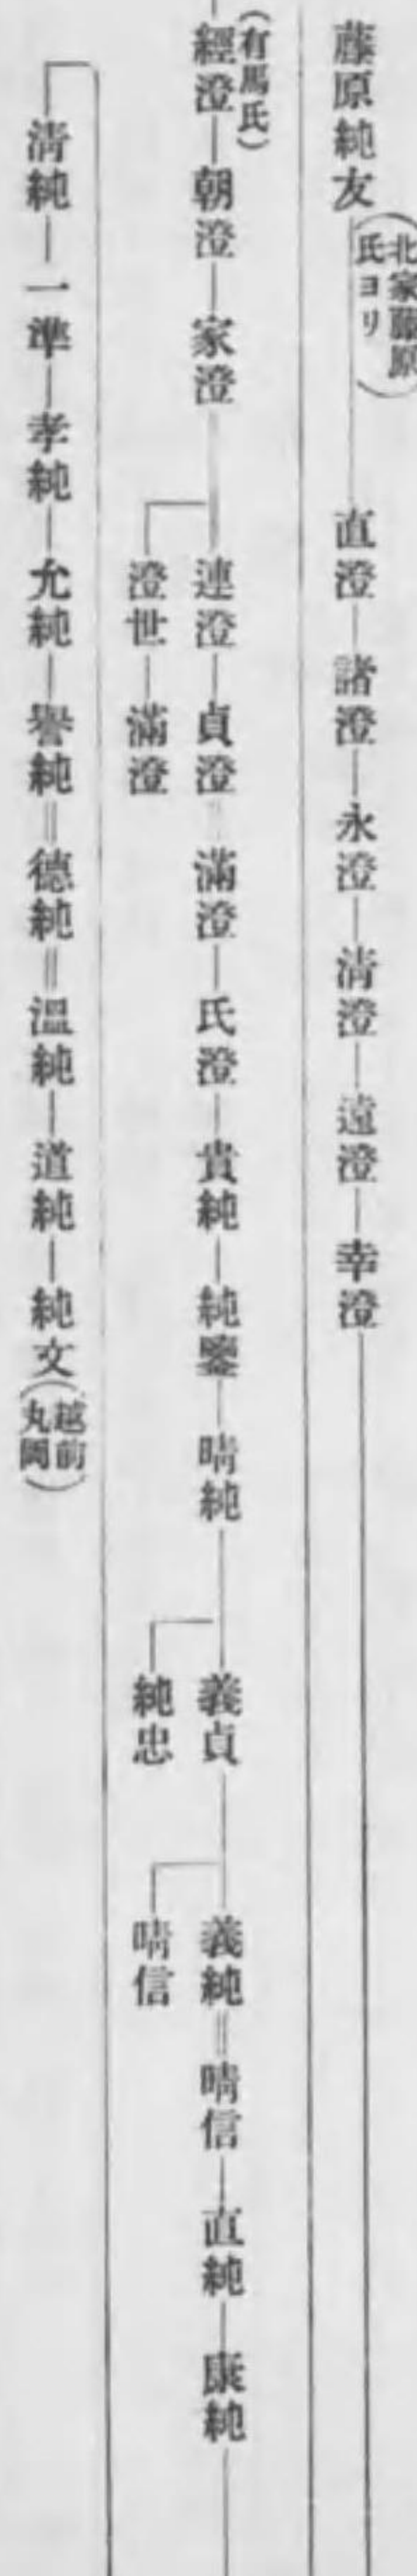 藤原純友(北家藤原氏ヨリ)直澄―諸澄―永澄―清澄―遠澄―幸澄
(有馬氏)
經澄―朝澄―家澄―連澄―貞澄=滿澄―氏澄―貴純―純鑒―晴純―義貞―義純=晴信―直純―康純
澄世―滿澄
純忠
晴信
清純―一準―孝純―允純―譽純=德純=溫純―道純―純文(越前丸岡)